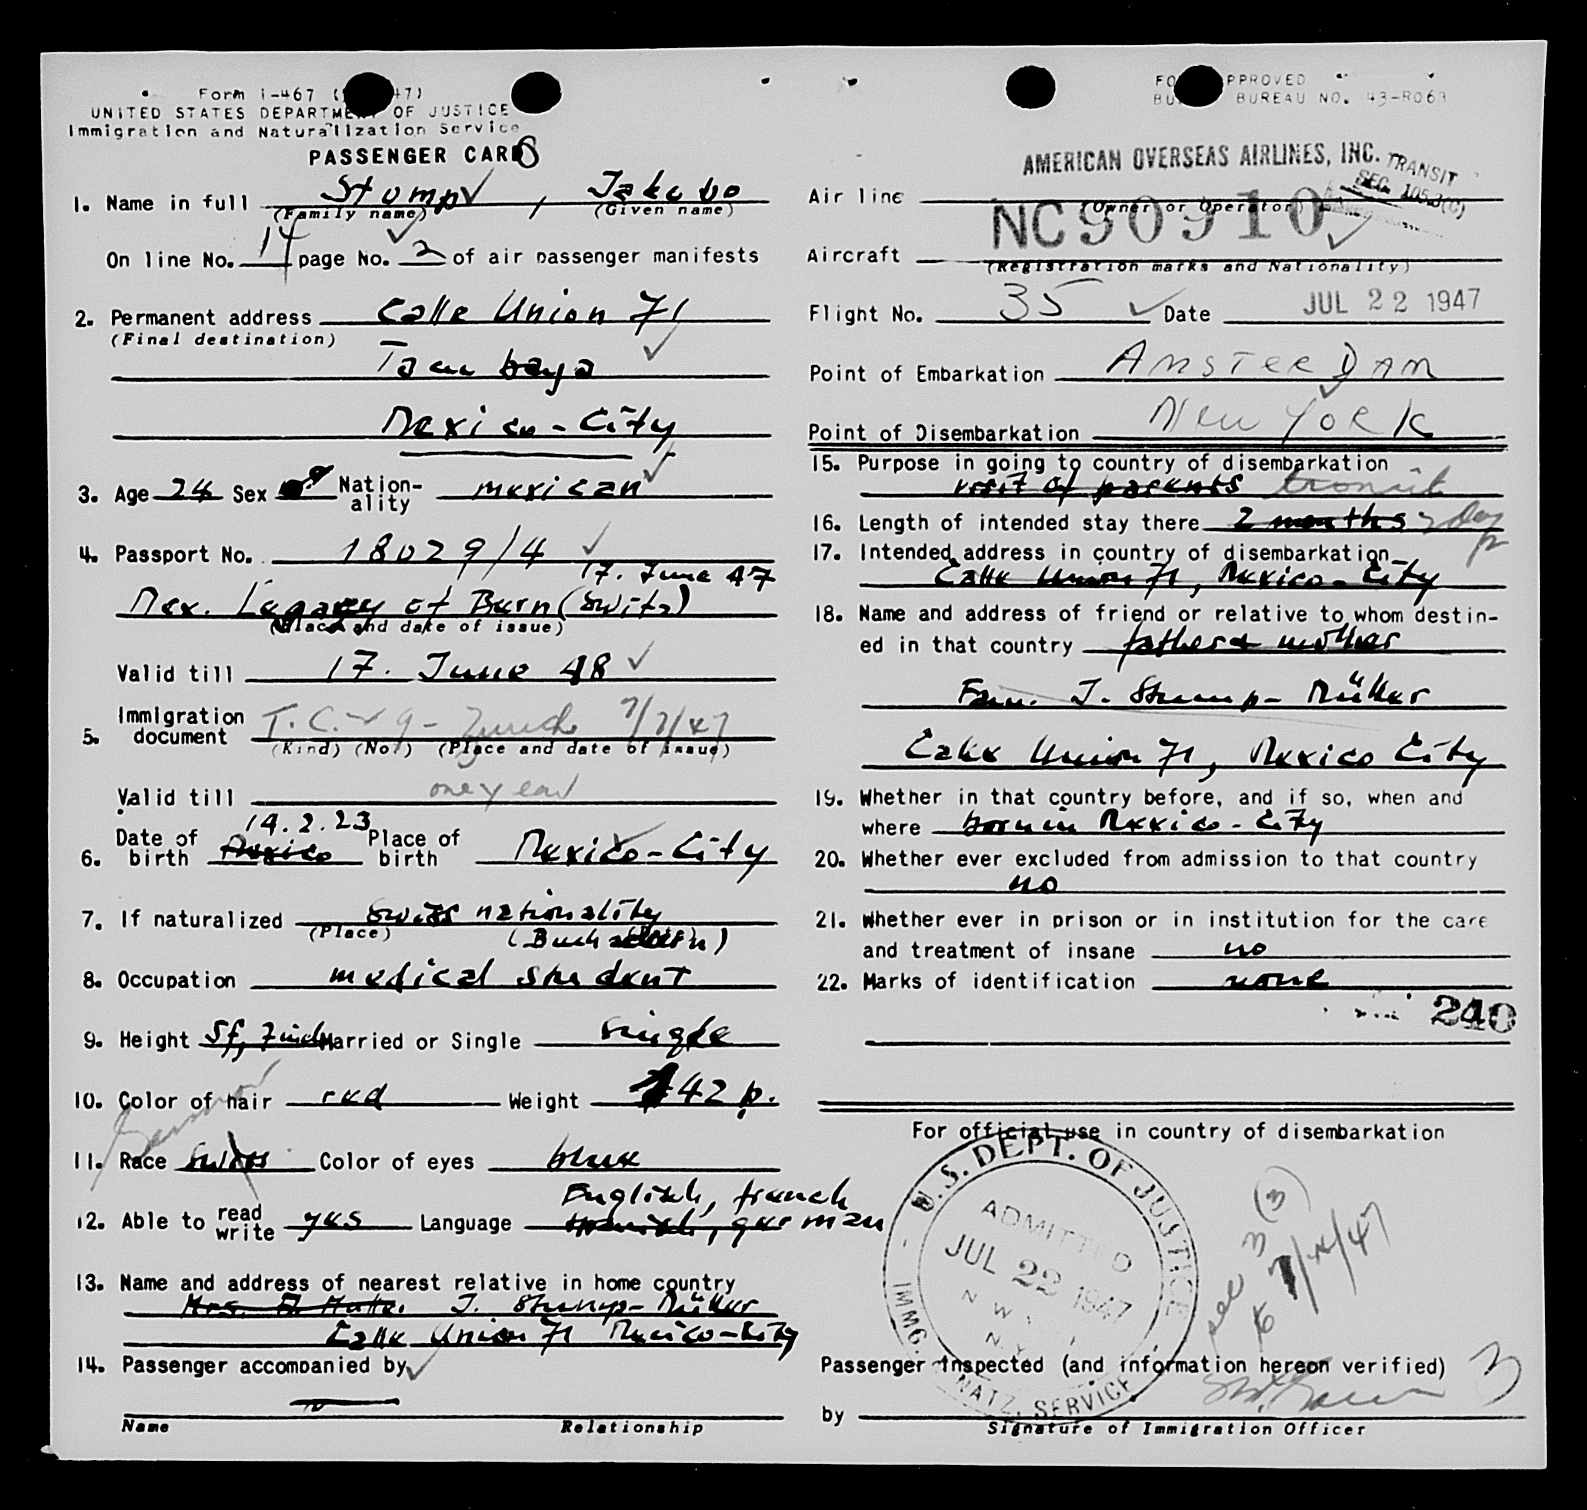 Form I-467
UNITED STATES DEPARTMENT OF JUSTICE
Immigration and Naturalization Service
PASSENGER CARD
1. Name in full Stump, Jakubo
(Family name) (Given name)
On line No. 14 page No. 2 of air passenger manifests
2. Permanent address Calle Union 71
(Final destination)
Tacubaya
Mexico-City
3. Age 24 Sex Nation-ality mexican
4. Passport No. 18029/4
17. June 47
Mex. Legacy of Bern (Switz)
(Place and date of issue)
Valid till 17. June 48
5. Immigration document T.C. 9 - Zurich 7/7/47
(Kind) (No.) (Place and date of issue)
Valid till one year
19.2.23
6. Date of birth Mexico Place of birth Mexico-City
7. If naturalized Swiss nationality
(Place)
8. Occupation medical student
9. Height 5f, 7inch Married or Single single
10. Color of hair red Weight 142 p.
German
11. Race Swiss Color of eyes blue
English, french
12. Able to read write yes Language spanish, german
13. Name and address of nearest relative in home country
Mrs. J. Stump-Müller
Calle Union 71 Mexico-City
14. Passenger accompanied by
Name Relationship
FORM APPROVED
BUREAU NO. 43-R063
AMERICAN OVERSEAS AIRLINES, INC.
TRANSIT
SEC. 105.3(C)
Air line
(Owner or Operator)
NC90910
Aircraft
(Registration marks and Nationality)
Flight No. 35 Date JUL 22 1947
Point of Embarkation AMSTERDAM
Point of Disembarkation NEW YORK
15. Purpose in going to country of disembarkation
visit of parents transit
16. Length of intended stay there 2 months
17. Intended address in country of disembarkation
Calle Union 71, Mexico-City
18. Name and address of friend or relative to whom destin-
ed in that country father & mother
Fam. J. Stump-Müller
Calle Union 71, Mexico City
19. Whether in that country before, and if so, when and
where born in Mexico-City
20. Whether ever excluded from admission to that country
no
21. Whether ever in prison or in institution for the care
and treatment of insane no
22. Marks of identification none
240
For official use in country of disembarkation
U.S. DEPT. OF JUSTICE
ADMITTED
JUL 22 1947
N.Y.
IMMG. NATZ. SERVICE
Passenger Inspected (and information hereon verified) 3
by
Signature of Immigration Officer